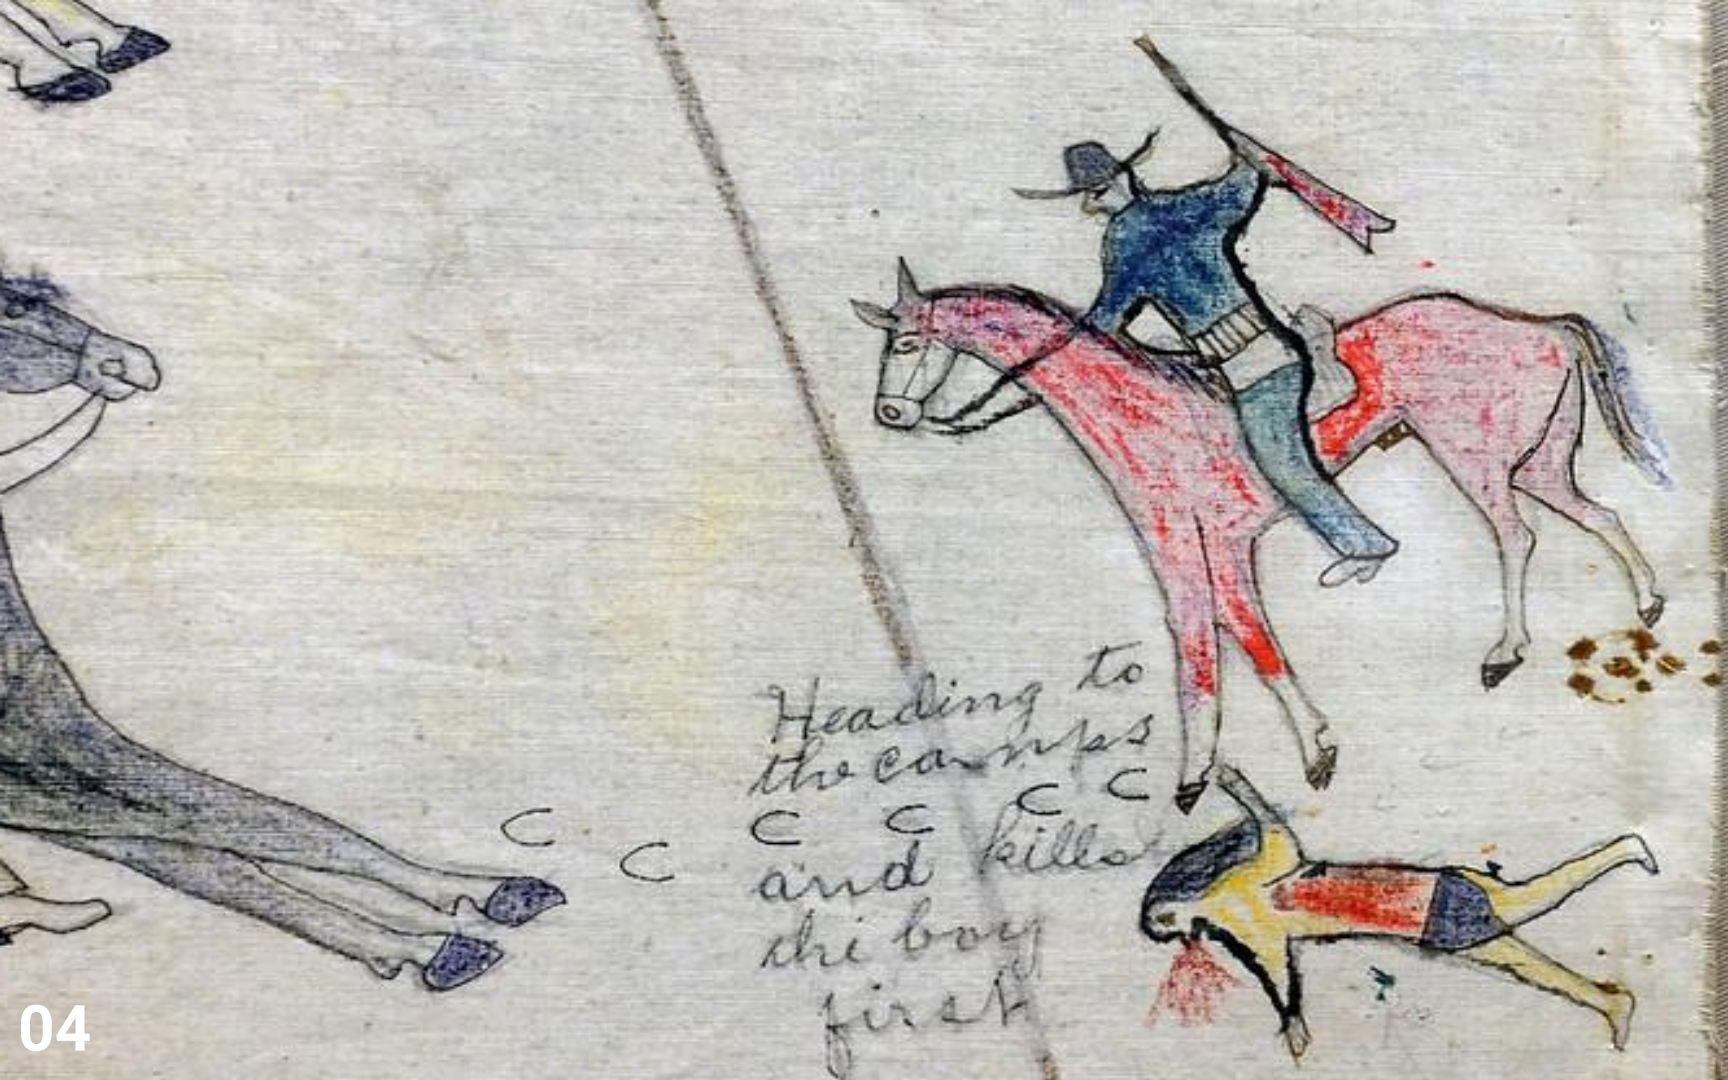 Heading to
the camps
C C C C C C
and kills
the boy
first
04